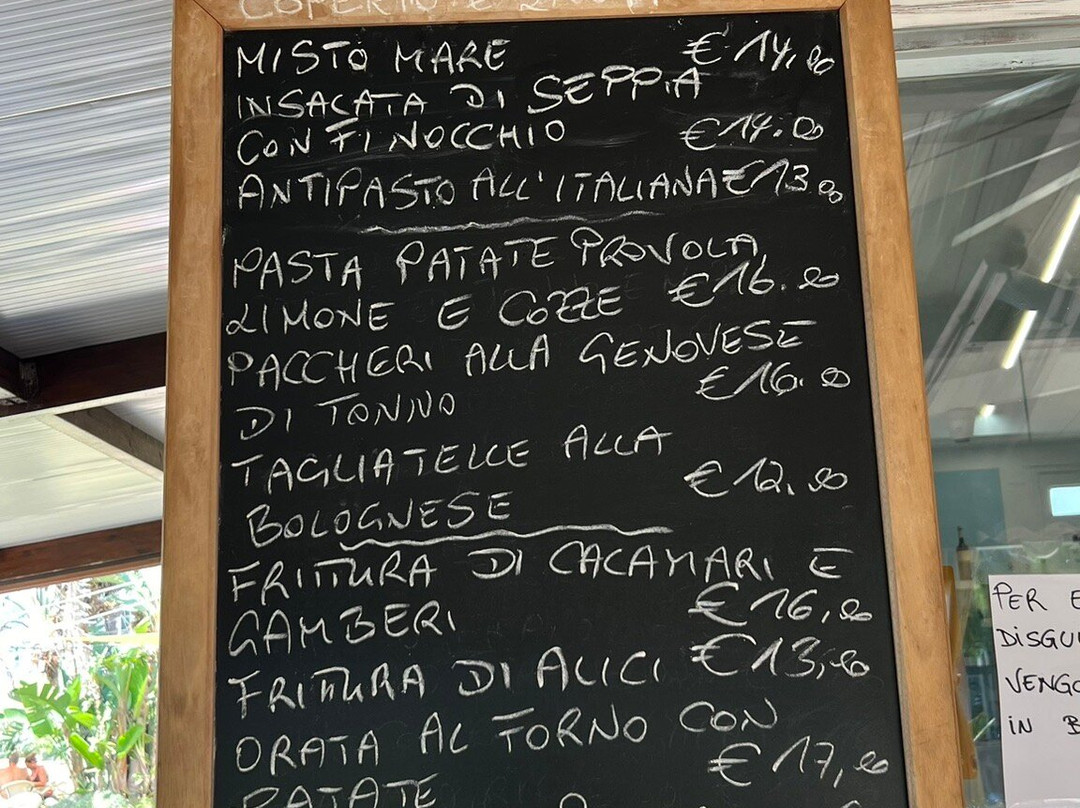 COPERTO €
MISTO MARE € 14,00
INSALATA DI SEPPIA
CON FINOCCHIO € 14.00
ANTIPASTO ALL'ITALIANA € 13.00
PASTA PATATE PROVOLA
LIMONE E COZZE € 16.00
PACCHERI ALLA GENOVESE
DI TONNO € 16.00
TAGLIATELLE ALLA
BOLOGNESE € 12.00
FRITTURA DI CALAMARI E
GAMBERI € 16,00
FRITTURA DI ALICI € 13,00
ORATA AL FORNO CON
PATATE € 17,00
PER E
DISGUI
VENGO
IN B